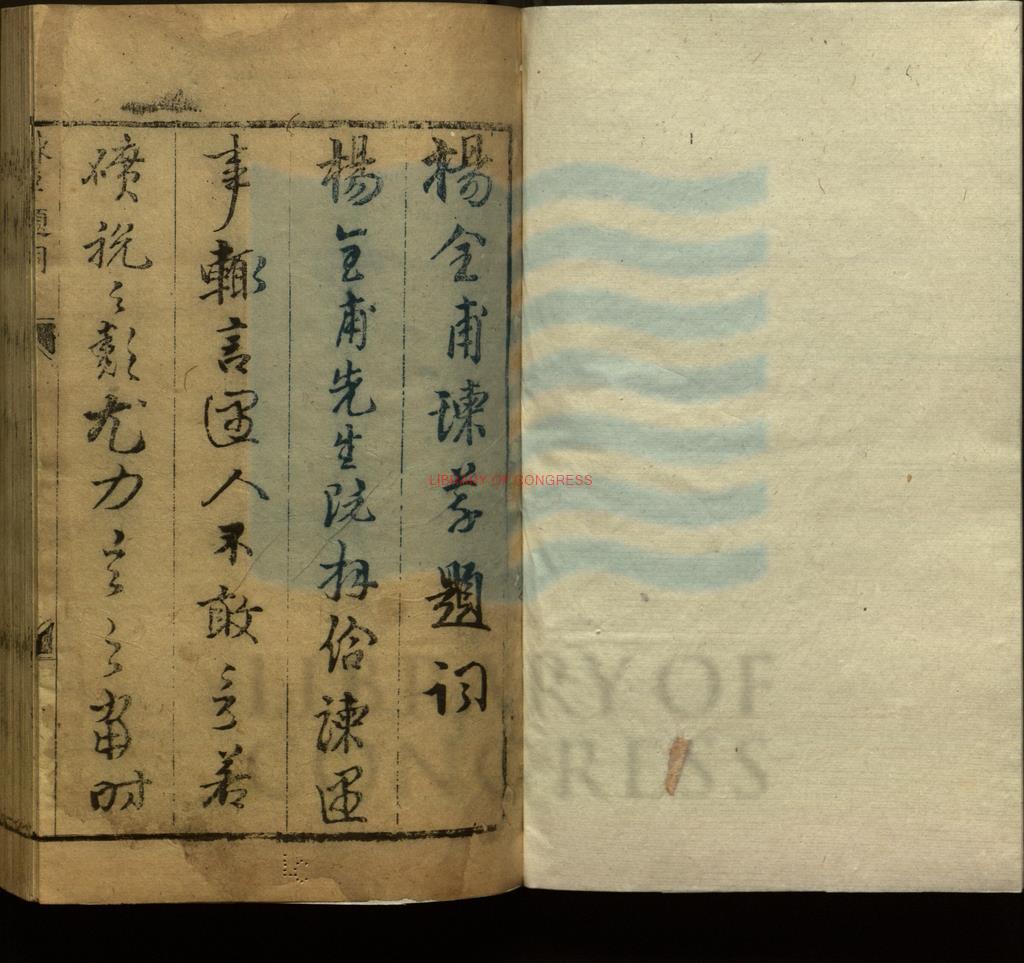 楊全甫諫草題詞
楊全甫先生既拜給諫遇
事輙言遇人不敢言若
礦稅之彰尤力言之當時
題詞
LIBRARY OF CONGRESS
LIBRARY OF
CONGRESS